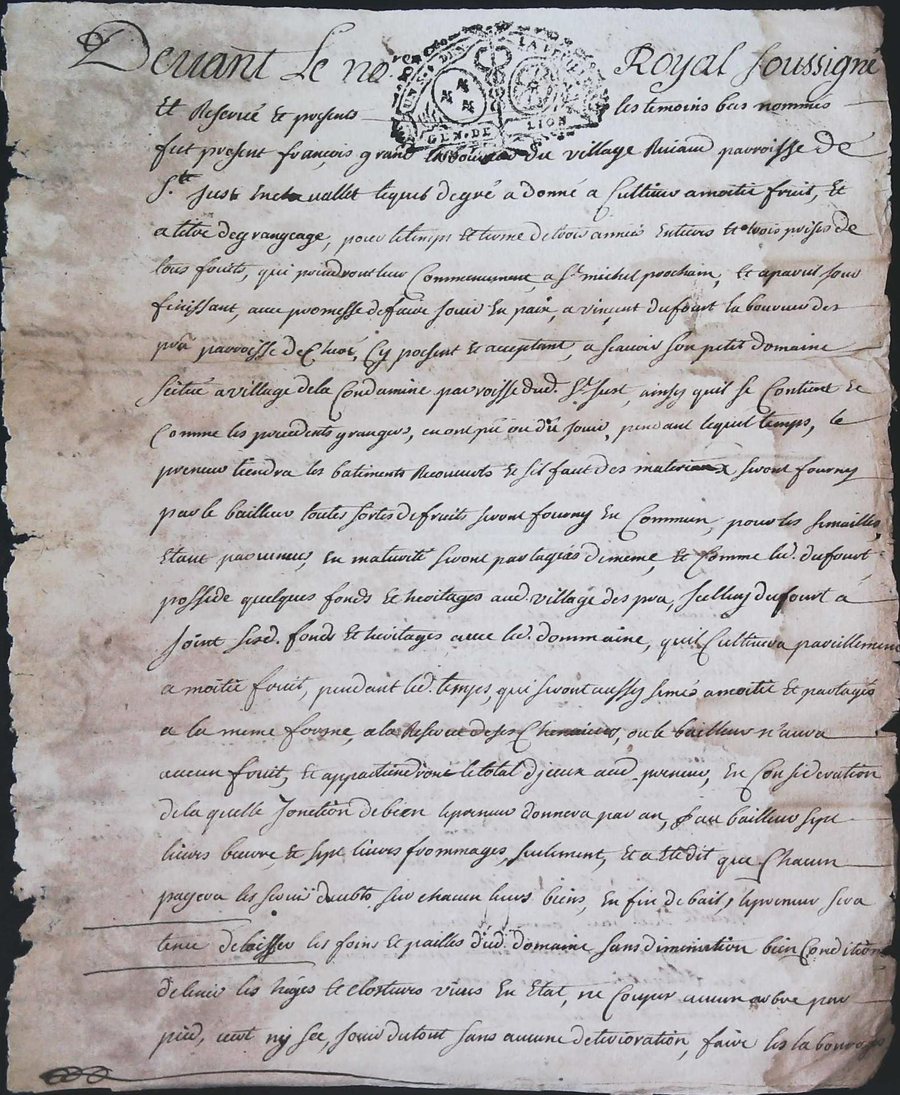 Devant Le no Royal soussigné
UN S. 4 DEN LA FEUILLE
GEN. DE LION
Et Reservé Et presents les temoins bas nommés
fut present françois grand laboureur du village paroisse de
St. Just En chevallet lequel de gré a donné a Cultiver a moitié fruit, Et
a titre de grangeage, pour le temps Et terme de trois années Entieres Et trois prises de
tous fruits, qui prendront leur Commencement a St. michel prochain, Et a pareil jour
finissant, avec promesse de faire jouir En paix, a vincent dufourt laboureur des
pra parroisse de Cy present Et acceptant, a scavoir son petit domaine
scitué a village de la Condamine parroisse dud. St. Just, ainsy quil se Contient Et
Comme les precedents grangers, en ont pü ou dû jouir, pendant lequel temps, le
preneur tiendra les batiments Recouverts Et sil faut des materiaux seront fourny
par le bailleur toutes sortes de fruits seront fourny En Commun, pour les semailles,
Etant parvenus, en maturité seront partagées de meme, Et Comme led. dufourt
possede quelques fonds Et heritages aud. village des pra, Icelluy dufourt a
Joint sesd. fonds Et heritages avec led. dommaine, quil Cultivera pareillement
a moitié fruit, pendant led. temps, qui seront aussy semés a moitié Et partagés
a la meme forme, a la Reserve de ses Chenaviers, ou le bailleur n'aura
aucun fruit, Et appartiendront le total d'jceux aud. preneur, En Consideration
de la quelle Jonction de bien le preneur donnera par an, au bailleur sept
livres beurre, Et sept livres frommages, seulement, Et a Eté dit que Chacun
payera les sur chacun leurs biens, En fin de bail, le preneur sera
tenu de laisser les foins Et pailles dud. domaine sans diminution bien Conditionné
de tenir les häyes Et clostures vives En Etat, ne Couper aucun arbre par
pied, vert ny sec, jouir du tout sans aucune deterioration, faire les labourages